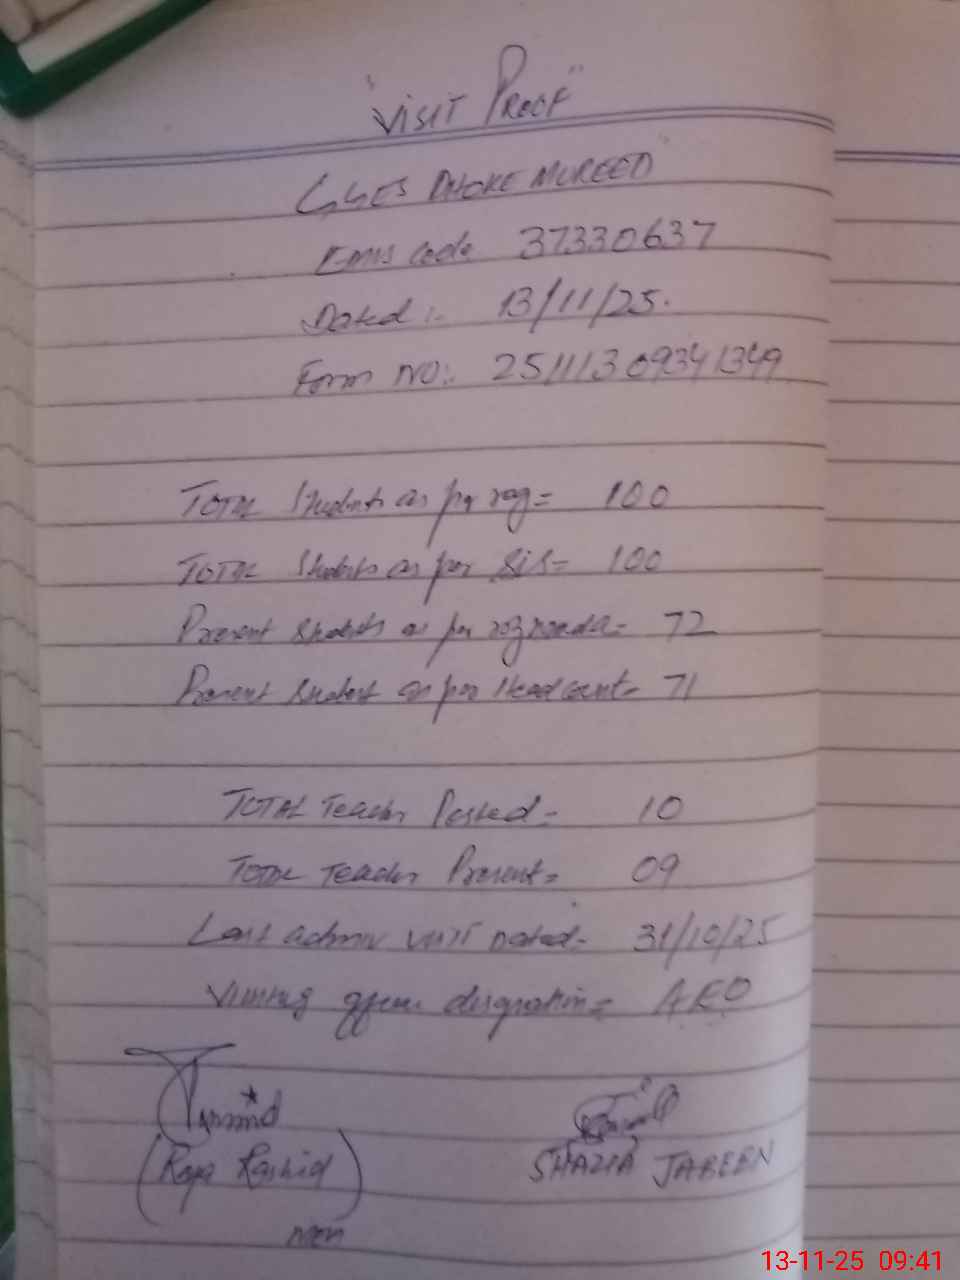 "VISIT PROOF"
GGES DHOKE MUREED
Emis code 37330637
Dated :- 13/11/25.
Form NO:- 25111309341349
TOTAL Students as per reg = 100
TOTAL Students as per SIS = 100
Present Students as per roznamcha = 72
Present Student as per Headcount = 71
TOTAL Teacher Posted = 10
TOTAL Teacher Present = 09
Last admn visit Dated = 31/10/25
Visiting officer designation = AEO
(Raja Rashid) SHAZIA JABEEN
13-11-25 09:41